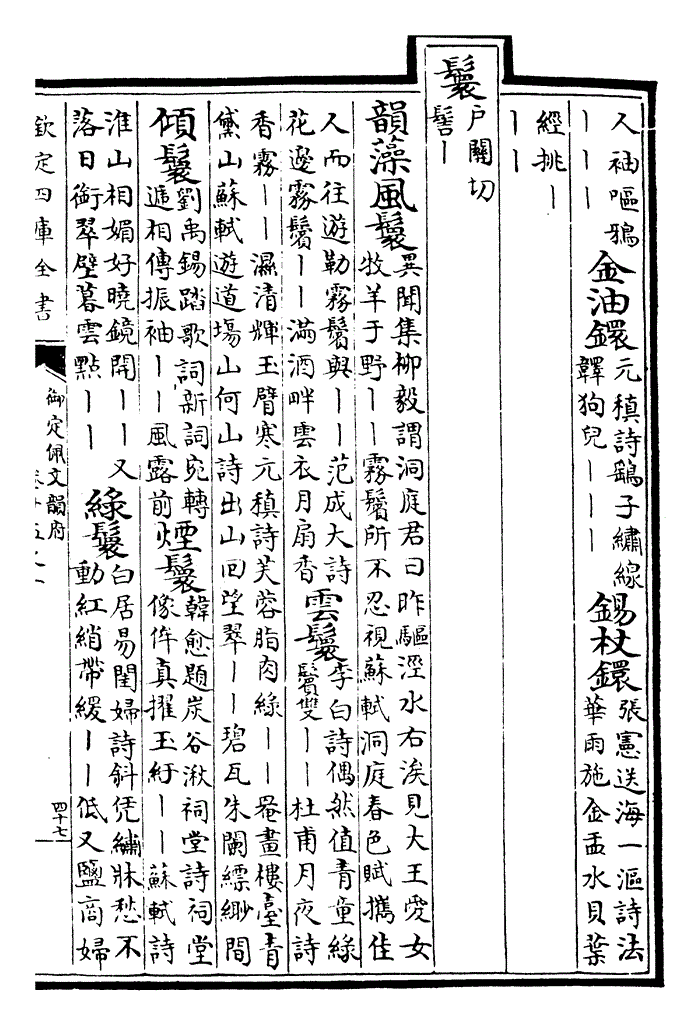 人袖嘔鴉
｜｜｜
金油鐶
元稹詩鷂子繡線
韡狗兒｜｜｜
錫杖鐶
張憲送海一漚詩法
華雨施金盂水貝葉
經挑｜
｜｜
鬟
戶關切
髻｜
韻藻風鬟
異聞集柳毅謂洞庭君曰昨驅涇水右涘見大王愛女
牧羊于野｜｜霧鬢所不忍視蘇軾洞庭春色賦攜佳
人而往遊勒霧鬢與｜｜范成大詩
花邊霧鬢｜｜滿酒畔雲衣月扇香
雲鬟
李白詩偶然值青童綠
鬢雙｜｜杜甫月夜詩
香霧｜｜濕清輝玉臂寒元稹詩芙蓉脂肉綠｜｜罨畫樓臺青
黛山蘇軾遊道塲山何山詩出山回望翠｜｜碧瓦朱闌縹緲間
傾鬟
劉禹錫踏歌詞新詞宛轉
遞相傳振袖｜｜風露前
煙鬟
韓愈題炭谷湫祠堂詩祠堂
像侔真擢玉紆｜｜蘇軾詩
淮山相媚好曉鏡開｜｜又
落日銜翠壁暮雲點｜｜
綠鬟
白居易閨婦詩斜凭繡牀愁不
動紅綃帶緩｜｜低又鹽商婦
欽定四庫全書
御定佩文韻府
四十七